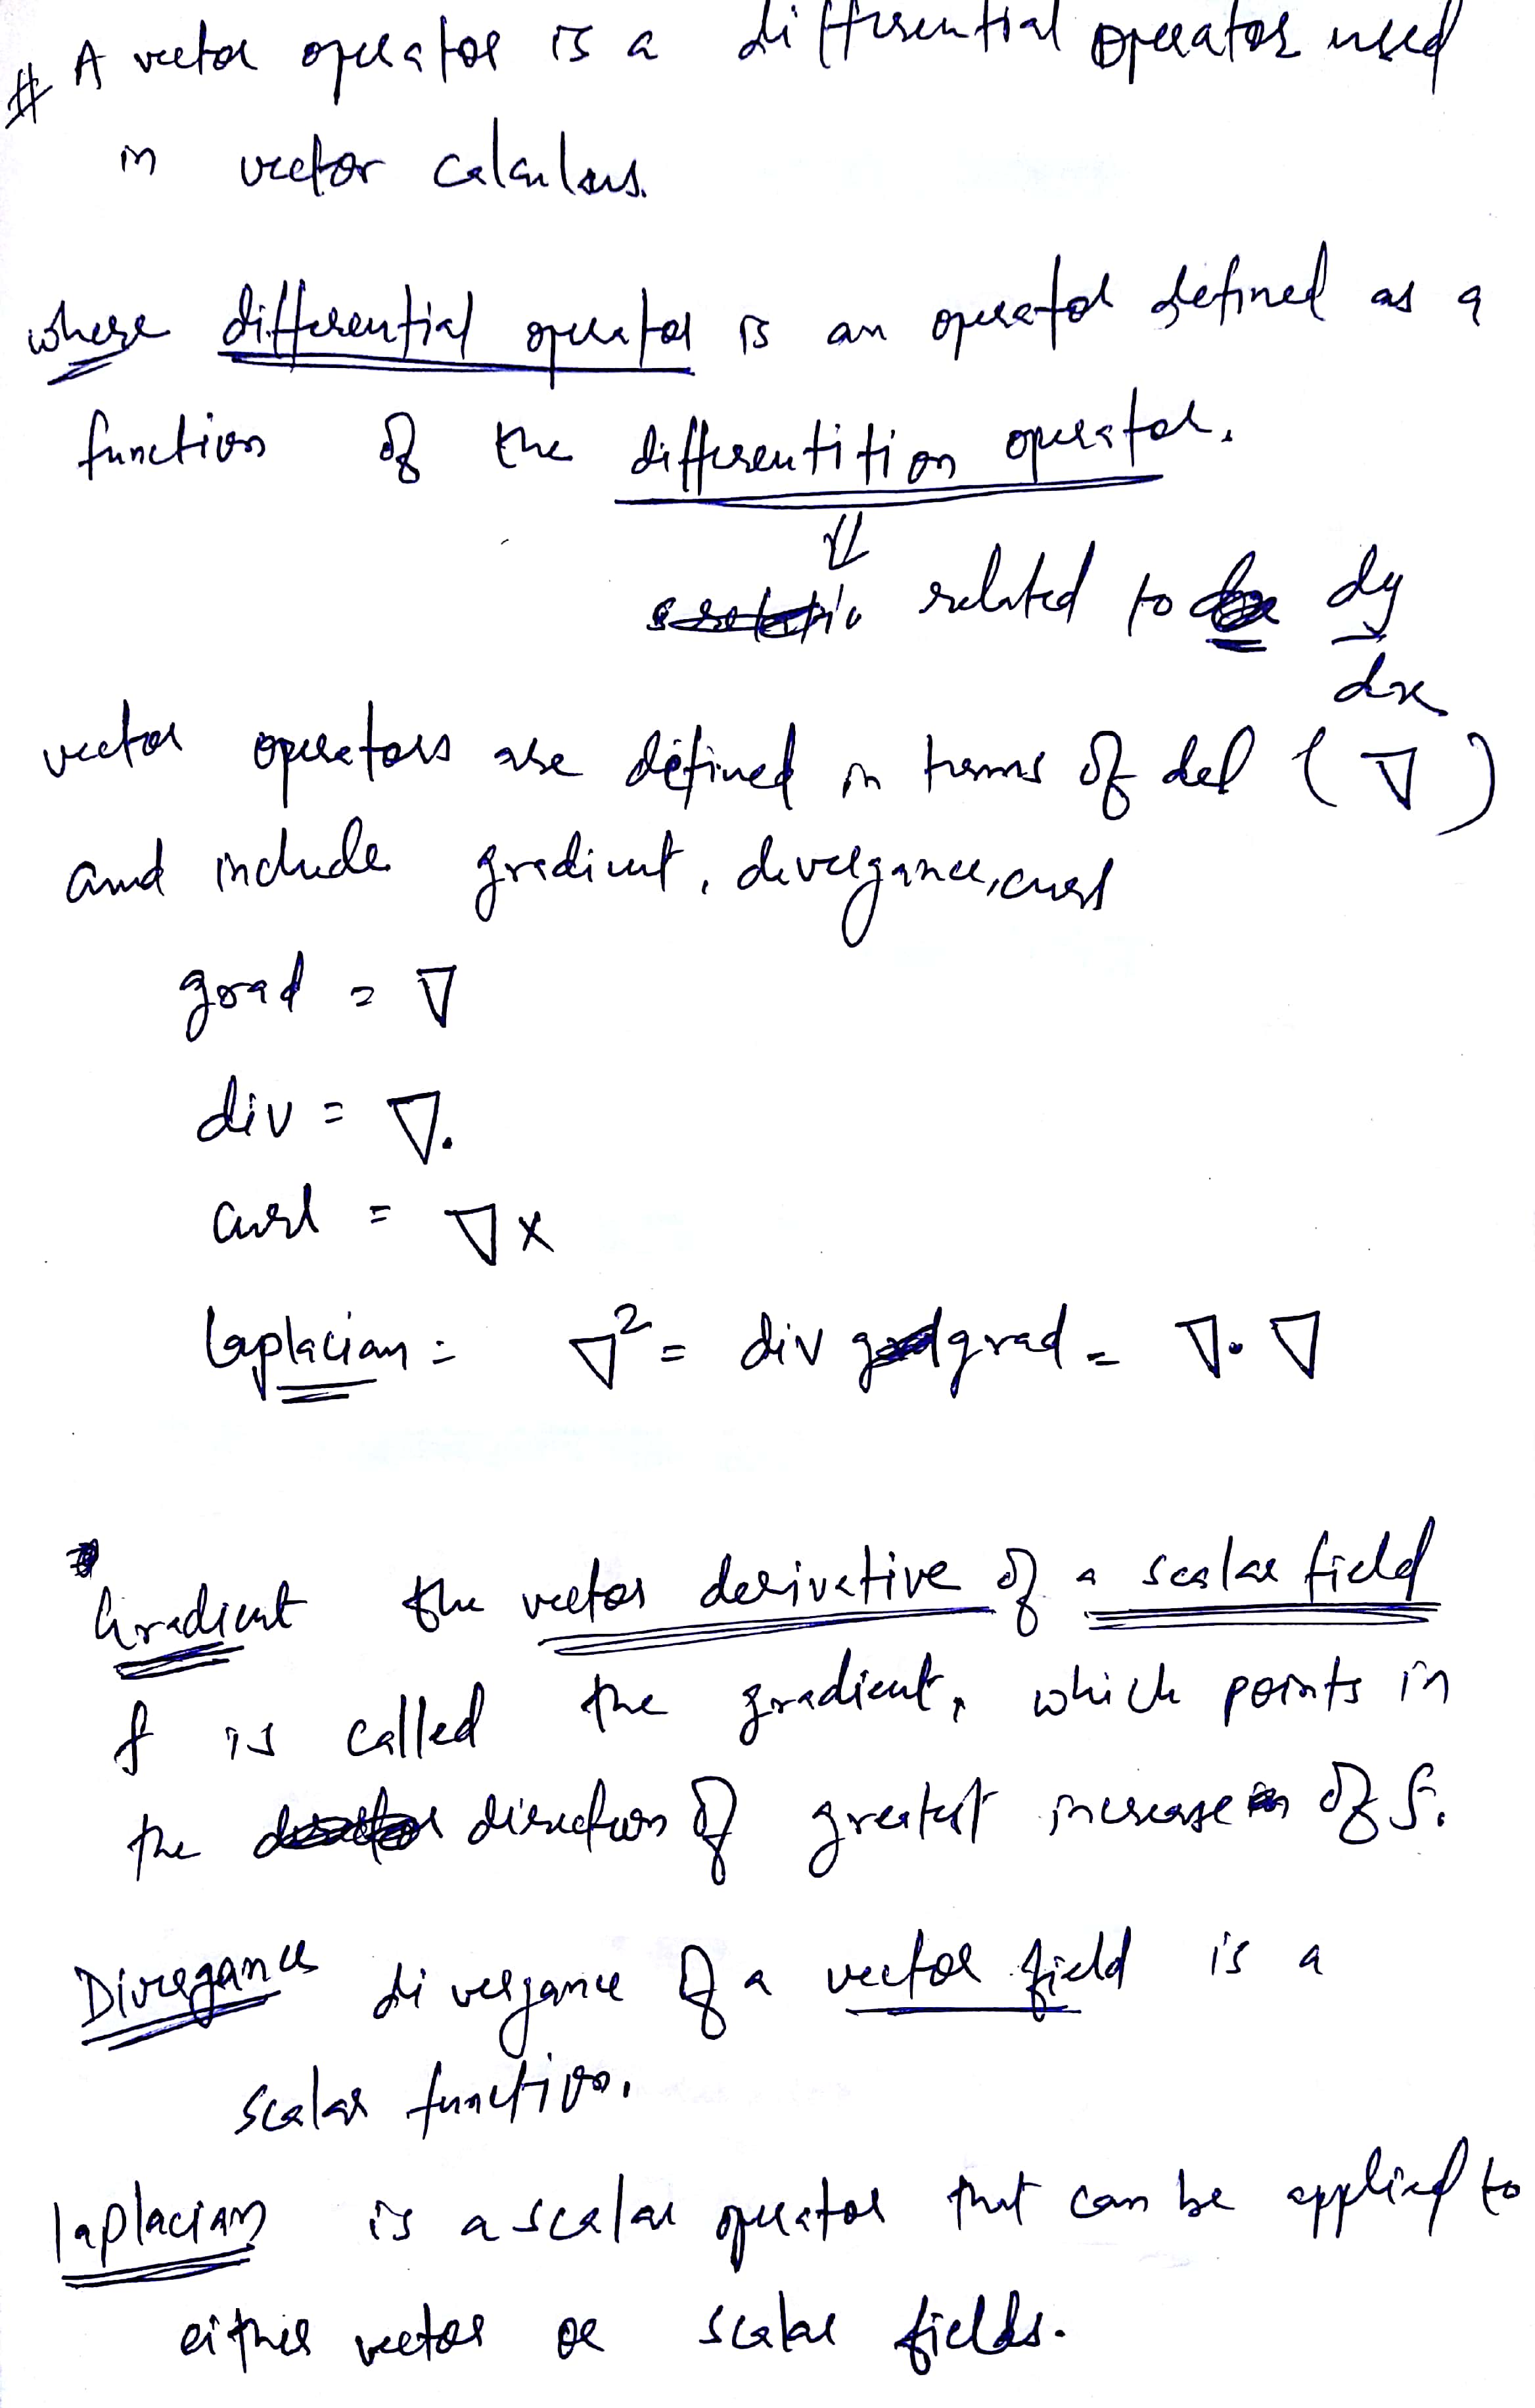 # A vector operator is a differential operator used
in vector calculus.
where differential operator is an operator defined as a
function of the differentition operator.
⇓
related to dy/dx
vector operators are defined in terms of del (∇)
and include gradient, divergance, curl
grad = ∇
div = ∇.
curl = ∇ x
laplacian = ∇² = div grad = ∇. ∇
Gradient the vector derivative of a scalar field
f is called the gradient, which points in
the direction of greatest increase of f.
Divergance divergance of a vector field is a
scalar function.
laplacian is a scalar operator that can be applied to
either vector or scalar fields.